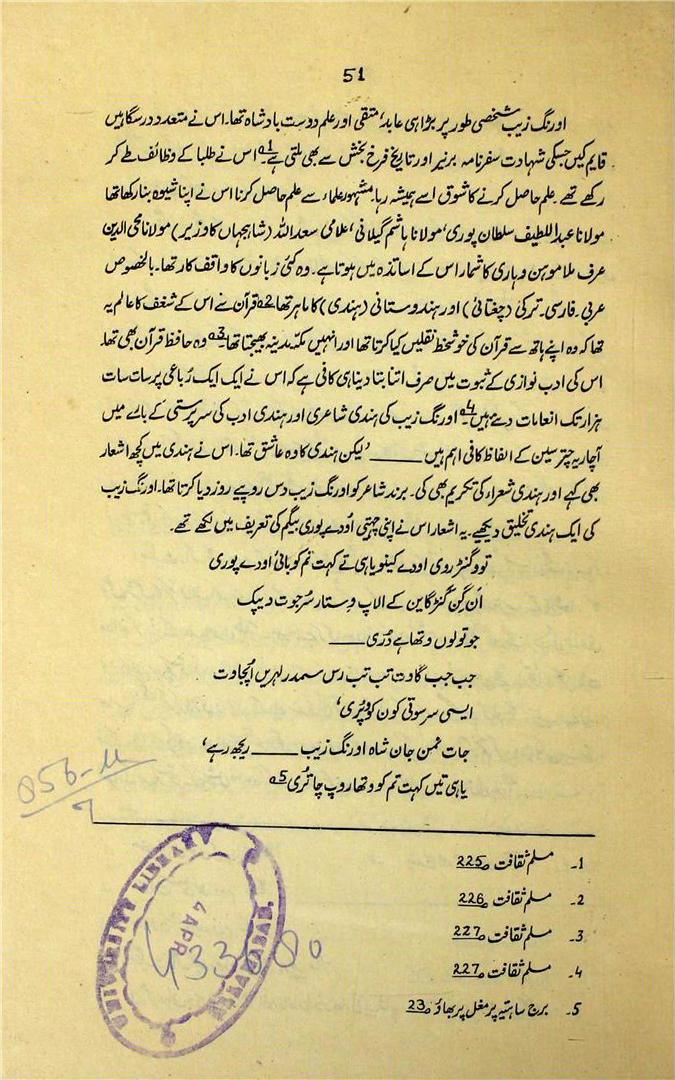 51
اورنگ زیب شخصی طور پر بڑا ہی عابد، متقی اور علم دوست بادشاہ تھا۔ اس نے متعدد درسگاہیں
قایم کیں جسکی شہادت سفرنامہ برنیر اور تاریخ فرخ بخش سے بھی ملتی ہے۔1 اس نے طلبا کے وظائف طے کر
رکھے تھے۔ علم حاصل کرنے کا شوق اسے ہمیشہ رہا۔ مشہور علماء سے علم حاصل کرنا اس نے اپنا شیوہ بنا رکھا تھا
مولانا عبداللطیف سلطان پوری، مولانا ہاشم گیلانی، علامی سعد اللہ (شاہجہاں کا وزیر) مولانا محی الدین
عرف ملا موہن وہاری کا شمار اس کے اساتذہ میں ہوتا ہے۔ وہ کئی زبانوں کا واقف کار تھا۔ بالخصوص
عربی۔ فارسی۔ ترکی (چغتائی) اور ہندوستانی (ہندی) کا ماہر تھا۔2 قرآن سے اس کے شغف کا عالم یہ
تھا کہ وہ اپنے ہاتھ سے قرآن کی خوشخط نقلیں کیا کرتا تھا اور انہیں مکہ مدینہ بھیجتا تھا۔3 وہ حافظ قرآن بھی تھا۔
اس کی ادب نوازی کے ثبوت میں صرف اتنا بتا دینا ہی کافی ہے کہ اس نے ایک ایک رُباعی پر سات سات
ہزار تک انعامات دیے ہیں۔4 اورنگ زیب کی ہندی شاعری اور ہندی ادب کی سرپرستی کے بارے میں
آچاریہ چترسین کے الفاظ کافی اہم ہیں ـــــ 'لیکن ہندی کا وہ عاشق تھا۔ اس نے ہندی میں کچھ اشعار
بھی کہے اور ہندی شعراء کی تکریم بھی کی۔ برند شاعر کو اورنگ زیب دس روپیے روز دیا کرتا تھا۔ اورنگ زیب
کی ایک ہندی تخلیق دیکھیے۔ یہ اشعار اس نے اپنی چہیتی اُودے پوری بیگم کی تعریف میں لکھے تھے۔
تو وگنڑ روی اودے کینو یا ہی تے کہت تم کو بائی اودے پوری
اَن گِن گنڑ گاین کے الاپ وستار سُرجوت دیپک
جو تو لوں وتھا ہے دُری ـــــ
جب جب گاوت تب تب رس سمدر لہریں اُپجاوت
ایسی سرسوتی کون کو پھُری'
جات نمن جان شاہ اورنگ زیب ـــــ ریجھ رہے'
یاہی تیں کہت تم کو وتھا روپ چاتُری5
056-
7
UNIVERSITY LIBRARY
4 APR
ALLAHABAD.
433680
1۔ مسلم ثقافت ص 225
2۔ مسلم ثقافت ص 226
3۔ مسلم ثقافت ص 227
4۔ مسلم ثقافت ص 227
5۔ برج ساہتیہ پر مغل پربھاؤ ص 23